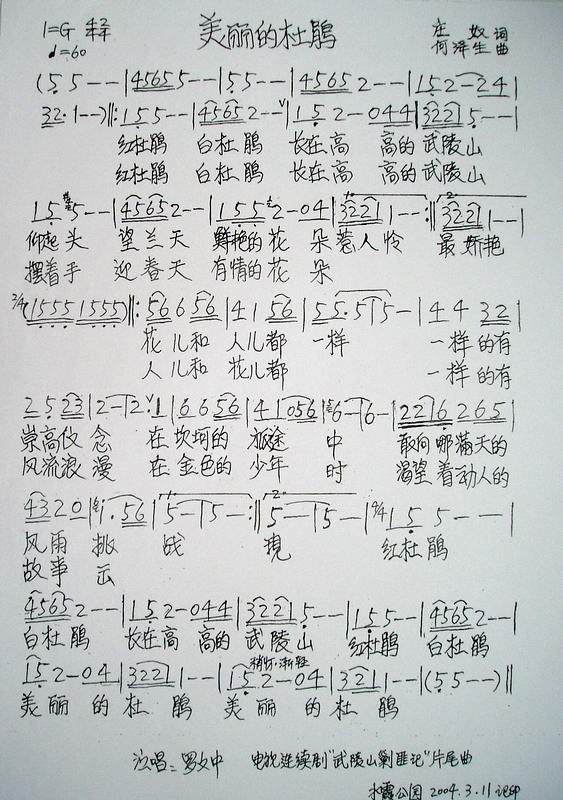 1=G 4/4 2/4 美丽的杜鹃 庄奴 词
♩=60 何泽生 曲
(5 5 - - | 4565 5 - - | 5 5 - - | 4565 2 - - | 1 5 2 - 2 4 |
32· 1 - -) ‖: 1 5 5 - - | 4565 2 - - ∨ | 1 5 2 - 0 4 4 | 3221 5 - - |
红杜鹃 白杜鹃 长在高 高的 武陵山
红杜鹃 白杜鹃 长在高 高的 武陵山
1 5 5 - - | 4565 2 - - | 1 5 5 2 - 0 4 | 3221 1 - - :‖ 3221 1 - - |
仰起头 望兰天 鲜艳的花 朵惹人怜 最娇艳
摆着手 迎春天 有情的花 朵
2/4 (1555 1555) ‖: 56 6 56 | 4 1 56 | 5 5· 5 | 5 - | 4 4 32 |
花儿和 人儿都 一样 一样的有
人儿和 花儿都 一样的有
2 5 23 | 2 - | 2 ∨ 1 | 6 6 56 | 4 1 056 | 6 - | 6 - | 2216 265 |
崇高仪念 在坎坷的 旅途 中 敢向哪满天的
风流浪漫 在金色的 少年 时 渴望着动人的
4320 | 1· 56 | 5 - | 5 - :‖ 5 - | 5 - | 4/4 1 5 5 - - |
风雨 挑 战 现 红杜鹃
故事 云
4565 2 - - | 1 5 2 - 0 4 4 | 3221 5 - - | 1 5 5 - - | 4565 2 - - |
白杜鹃 长在高 高的 武陵山 红杜鹃 白杜鹃
稍慢·渐轻
1 5 2 - 0 4 | 3221 1 - - | 1 5 2 - 0 4 | 3221 1 - - | (5 5 - -) ‖
美丽 的杜鹃 美丽 的杜鹃
演唱：罗文中 电视连续剧"武陵山剿匪记"片尾曲
水霞公园 2004.3.11 记印